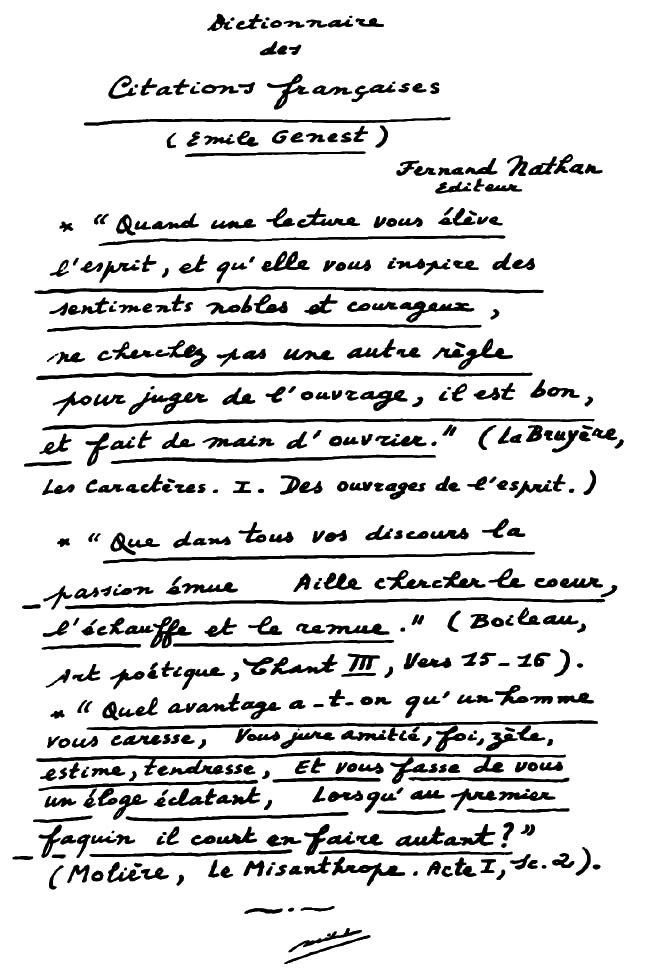 Dictionnaire
des
Citations françaises
(Emile Genest)
Fernand Nathan
Editeur
* "Quand une lecture vous élève
l'esprit, et qu'elle vous inspire des
sentiments nobles et courageux,
ne cherchez pas une autre règle
pour juger de l'ouvrage, il est bon,
et fait de main d'ouvrier." (La Bruyère,
Les Caractères. I. Des ouvrages de l'esprit.)
* "Que dans tous vos discours la
passion émue Aille chercher le coeur,
l'échauffe et le remue." (Boileau,
Art poétique, Chant III, Vers 15-16).
* "Quel avantage a-t-on qu'un homme
vous caresse, Vous jure amitié, foi, zèle,
estime, tendresse, Et vous fasse de vous
un éloge éclatant, Lorsqu'au premier
faquin il court en faire autant?"
(Molière, Le Misanthrope. Acte I, Sc. 2).